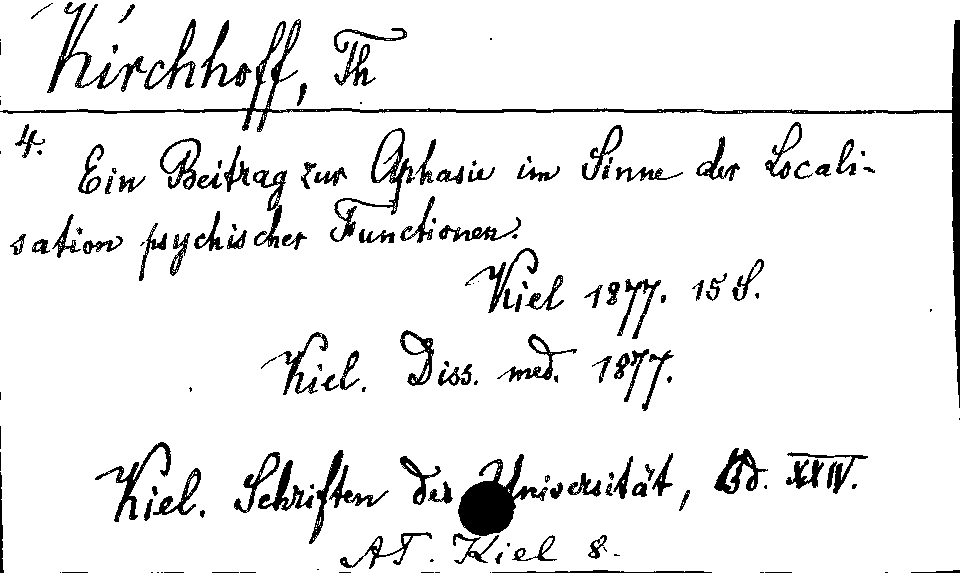 Kirchhoff, Th
4.
Ein Beitrag zur Aphasie im Sinne der Locali-
sation psychischer Functionen.
Kiel 1877. 15 S.
Kiel. Diss. med. 1877.
Kiel. Schriften der Universität, Bd. XXIV.
AT. Kiel 8.